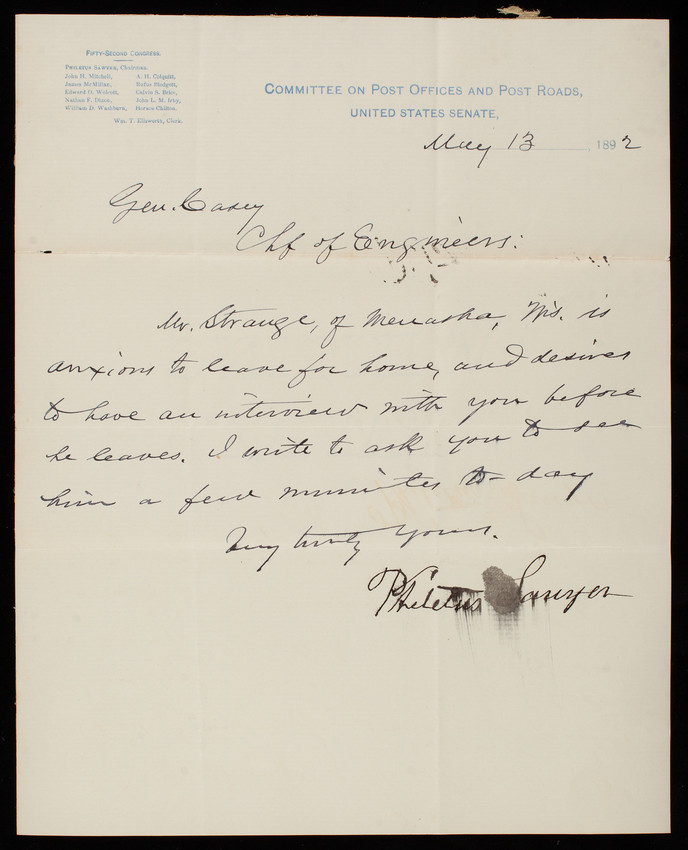 FIFTY-SECOND CONGRESS.
PHILETUS SAWYER, Chairman.
John H. Mitchell, A. H. Colquitt,
James McMillan, Rufus Blodgett,
Edward O. Wolcott, Calvin S. Brice,
Nathan F. Dixon, John L. M. Irby,
William D. Washburn, Horace Chilton.
Wm. T. Ellsworth, Clerk.
COMMITTEE ON POST OFFICES AND POST ROADS,
UNITED STATES SENATE,
May 13, 1892
Gen. Casey
Chf of Engineers:
Mr. Strange, of Menasha, Wis. is
anxious to leave for home, and desires
to have an interview with you before
he leaves. I write to ask you to see
him a few minutes to-day
Very truly yours.
Philetus Sawyer